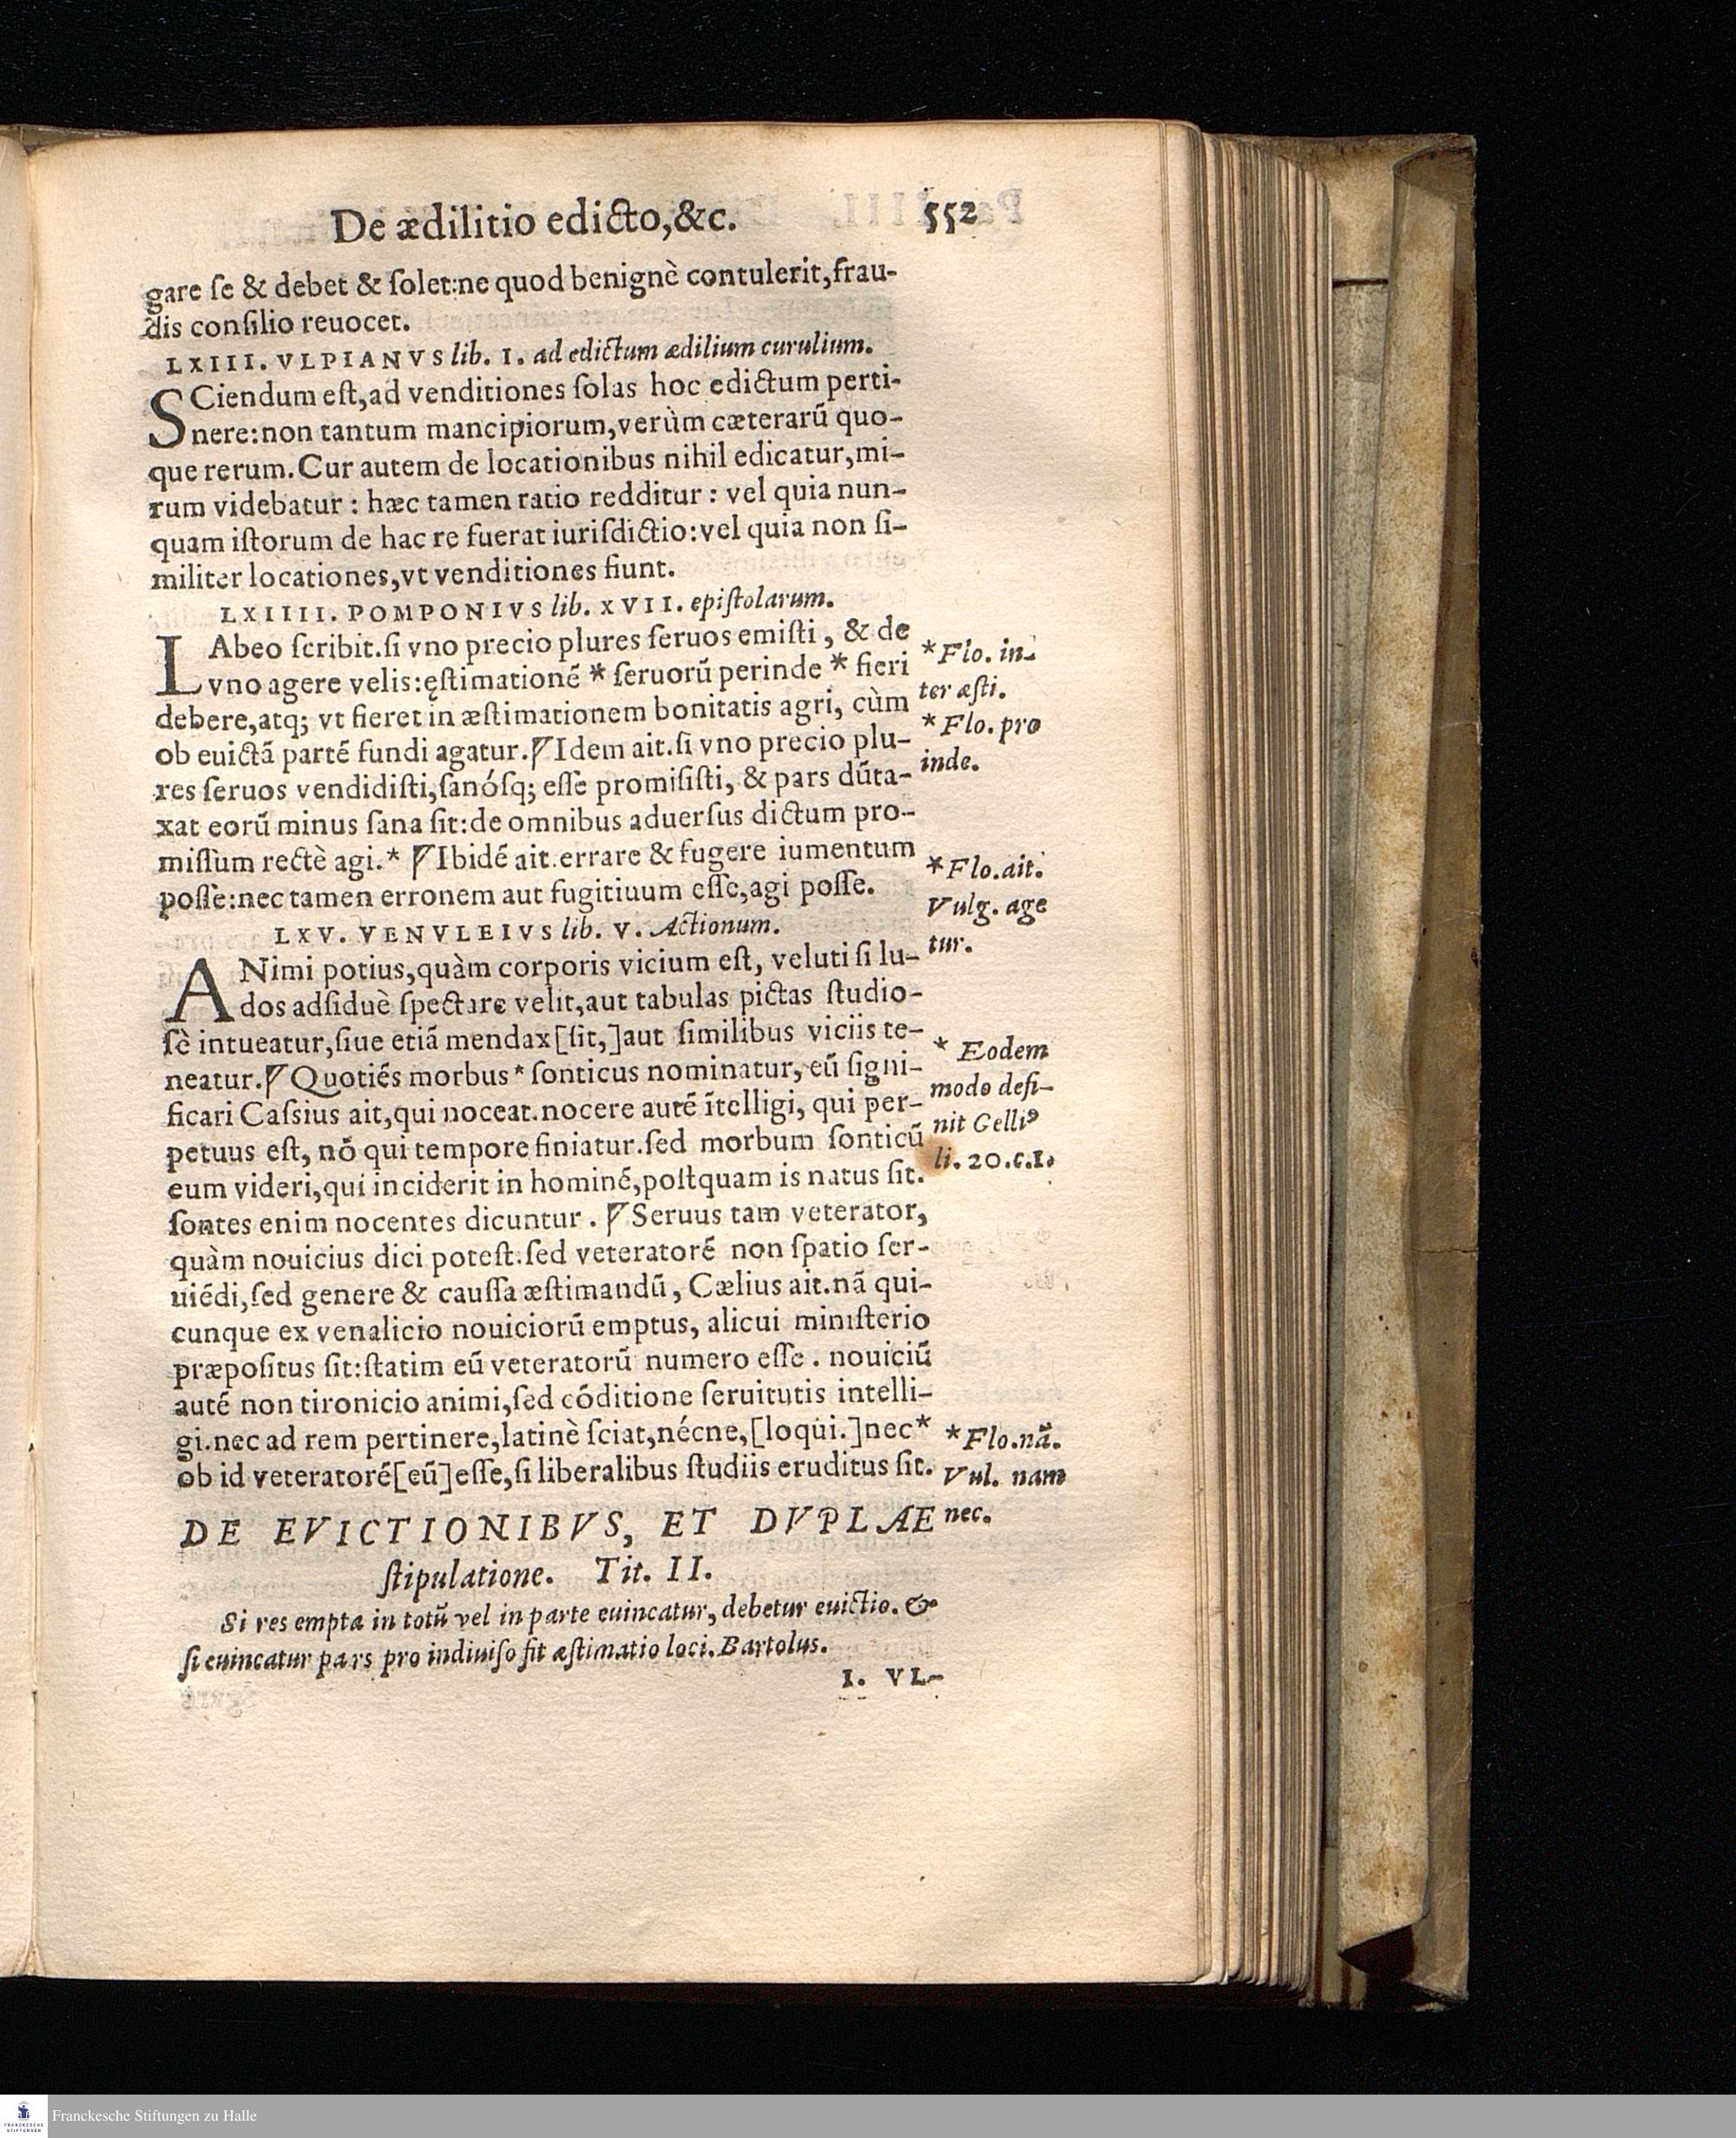 De ædilitio edicto,&c. 552
gare ſe & debet & ſolet:ne quod benignè contulerit,frau-
dis conſilio reuocet.
LXIII. VLPIANVS lib. I. ad edictum ædilium curulium.
SCiendum eſt,ad venditiones ſolas hoc edictum perti-
nere:non tantum mancipiorum,verùm cæterarū quo-
que rerum.Cur autem de locationibus nihil edicatur,mi-
rum videbatur : hæc tamen ratio redditur : vel quia nun-
quam iſtorum de hac re fuerat iuriſdictio:vel quia non ſi-
militer locationes,vt venditiones fiunt.
LXIIII. POMPONIVS lib. XVII. epiſtolarum.
LAbeo ſcribit.ſi vno precio plures ſeruos emiſti, & de
vno agere velis:ęſtimationē * ſeruorū perinde * fieri
debere,atq; vt fieret in æſtimationem bonitatis agri, cùm
ob euictā partē fundi agatur.⸿Idem ait.ſi vno precio plu-
res ſeruos vendidiſti,ſanóſq; eſſe promiſiſti, & pars dūta-
xat eorū minus ſana ſit:de omnibus aduerſus dictum pro-
miſſum rectè agi.* ⸿Ibidē ait.errare & fugere iumentum
poſſe:nec tamen erronem aut fugitiuum eſſe,agi poſſe.
LXV. VENVLEIVS lib. V. Actionum.
ANimi potius,quàm corporis vicium eſt, veluti ſi lu-
dos adſiduè ſpectare velit,aut tabulas pictas ſtudio-
ſè intueatur,ſiue etiā mendax[ſit,]aut ſimilibus viciis te-
neatur.⸿Quotiēs morbus* ſonticus nominatur, eū ſigni-
ficari Caſsius ait,qui noceat.nocere autē ītelligi, qui per-
petuus eſt, nō qui tempore finiatur.ſed morbum ſonticū
eum videri,qui inciderit in hominē,poſtquam is natus ſit.
ſontes enim nocentes dicuntur . ⸿Seruus tam veterator,
quàm nouicius dici poteſt.ſed veteratorē non ſpatio ſer-
uiēdi,ſed genere & cauſſa æſtimandū, Cælius ait.nā qui-
cunque ex venalicio nouiciorū emptus, alicui miniſterio
præpoſitus ſit:ſtatim eū veteratorū numero eſſe . nouiciū
autē non tironicio animi,ſed cōditione ſeruitutis intelli-
gi.nec ad rem pertinere,latinè ſciat,nécne,[loqui.]nec*
ob id veteratorē[eū]eſſe,ſi liberalibus ſtudiis eruditus ſit.
DE EVICTIONIBVS, ET DVPLAE
ſtipulatione. Tit. II.
Si res empta in totū vel in parte euincatur, debetur euictio. &
ſi euincatur pars pro indiuiſo fit æſtimatio loci. Bartolus.
I. VL-
*Flo. in-
ter æſti.
*Flo. pro
inde.
*Flo.ait.
Vulg. age
tur.
* Eodem
modo defi-
nit Gelliꝰ
li. 20.c.1.
*Flo.nā.
Vul. nam
nec.
FRANCKESCHE
STIFTUNGEN
Franckesche Stiftungen zu Halle